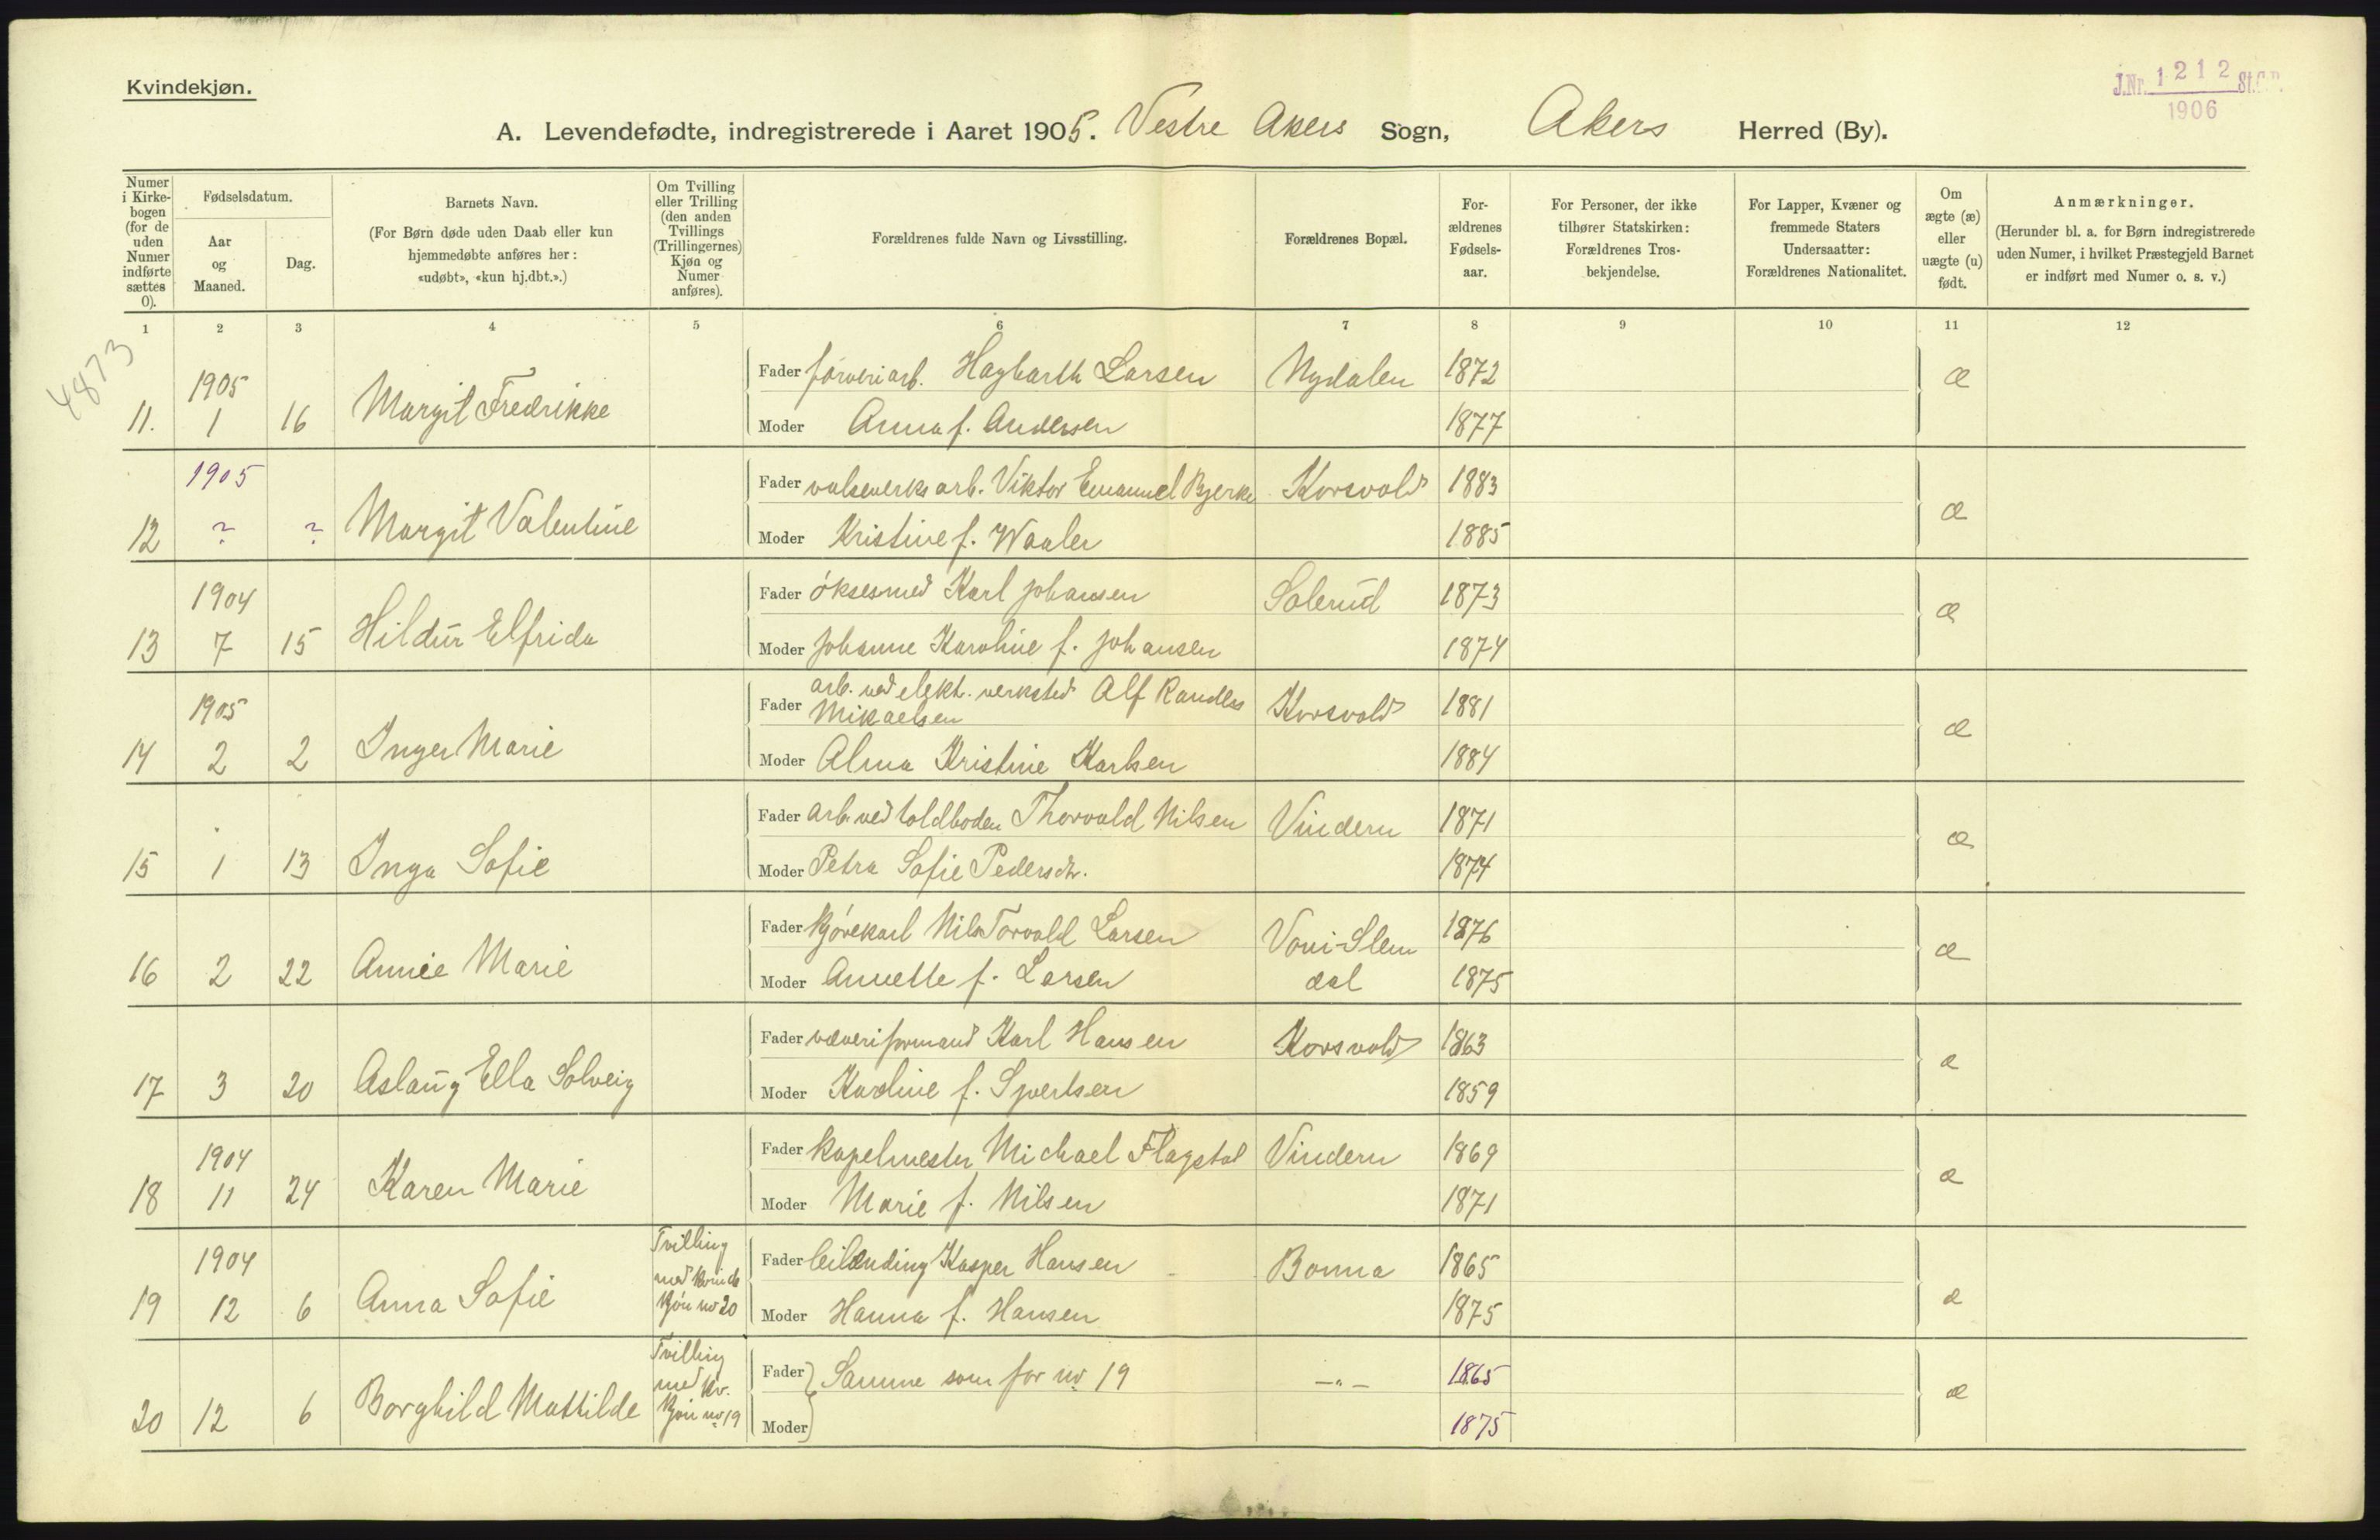 Kvindekjøn.
J.Nr. 1212 St.
1906
A. Levendefødte, indregistrerede i Aaret 1905. Vestre Akers Sogn, Akers Herred (By).
Numer i Kirkebogen (for de uden Numer indførte sættes 0).
Fødselsdatum.
Aar og Maaned.
Dag.
Barnets Navn.
(For Børn døde uden Daab eller kun hjemmedøbte anføres her: «udøbt», «kun hj.dbt.».)
Om Tvilling eller Trilling (den anden Tvillings (Trillingernes) Kjøn og Numer anføres).
Forældrenes fulde Navn og Livsstilling.
Forældrenes Bopæl.
Forældrenes Fødselsaar.
For Personer, der ikke tilhører Statskirken: Forældrenes Trosbekjendelse.
For Lapper, Kvæner og fremmede Staters Undersaatter: Forældrenes Nationalitet.
Om ægte (æ) eller uægte (u) født.
Anmærkninger.
(Herunder bl. a. for Børn indregistrerede uden Numer, i hvilket Præstegjeld Barnet er indført med Numer o. s. v.)
1 2 3 4 5 6 7 8 9 10 11 12
4873
1905 Fader farveriarb. Hagbarth Larsen Nydalen 1872 æ
11. 1 16 Margit Fredrikke Moder Anna f. Andersen 1877
1905 Fader valseverksarb. Viktor Emanuel Bjerke Korsvold 1883 æ
12 ? ? Margit Valentine Moder Kristine f. Waaler 1885
1904 Fader øksesmed Karl Johansen Solerud 1873 æ
13 7 15 Hildur Elfrida Moder Johanne Karoline f. Johansen 1874
1905 Fader arb. ved elekt. verksted Alf Randles Korsvold 1881 æ
Mikaelsen
14 2 2 Inger Marie Moder Alma Kristine Karlsen 1884
Fader arb. ved toldboden Thorvald Nilsen Vindern 1871 æ
15 1 13 Inga Sofie Moder Petra Sofie Pedersdtr. 1874
Fader kjørekarl Nils Torvald Larsen Voxi-Slem 1876 æ
16 2 22 Annie Marie Moder Annette f. Larsen dal 1875
Fader væveriformand Karl Hansen Korsvold 1863 æ
17 3 20 Aslaug Ella Solveig Moder Karoline f. Sjvertsen 1859
1904 Fader kapelmester Michael Flagstad Vindern 1869 æ
18 11 24 Karen Marie Moder Marie f. Nilsen 1871
1904 Tvilling med kvinde kjøn no 20 Fader leilænding Kasper Hansen Bonna 1865 æ
19 12 6 Anna Sofie Moder Hanna f. Hansen 1875
Tvilling med kv. kjøn no 19 Fader Samme som for no 19 —„— 1865 æ
20 12 6 Borghild Mathilde Moder 1875